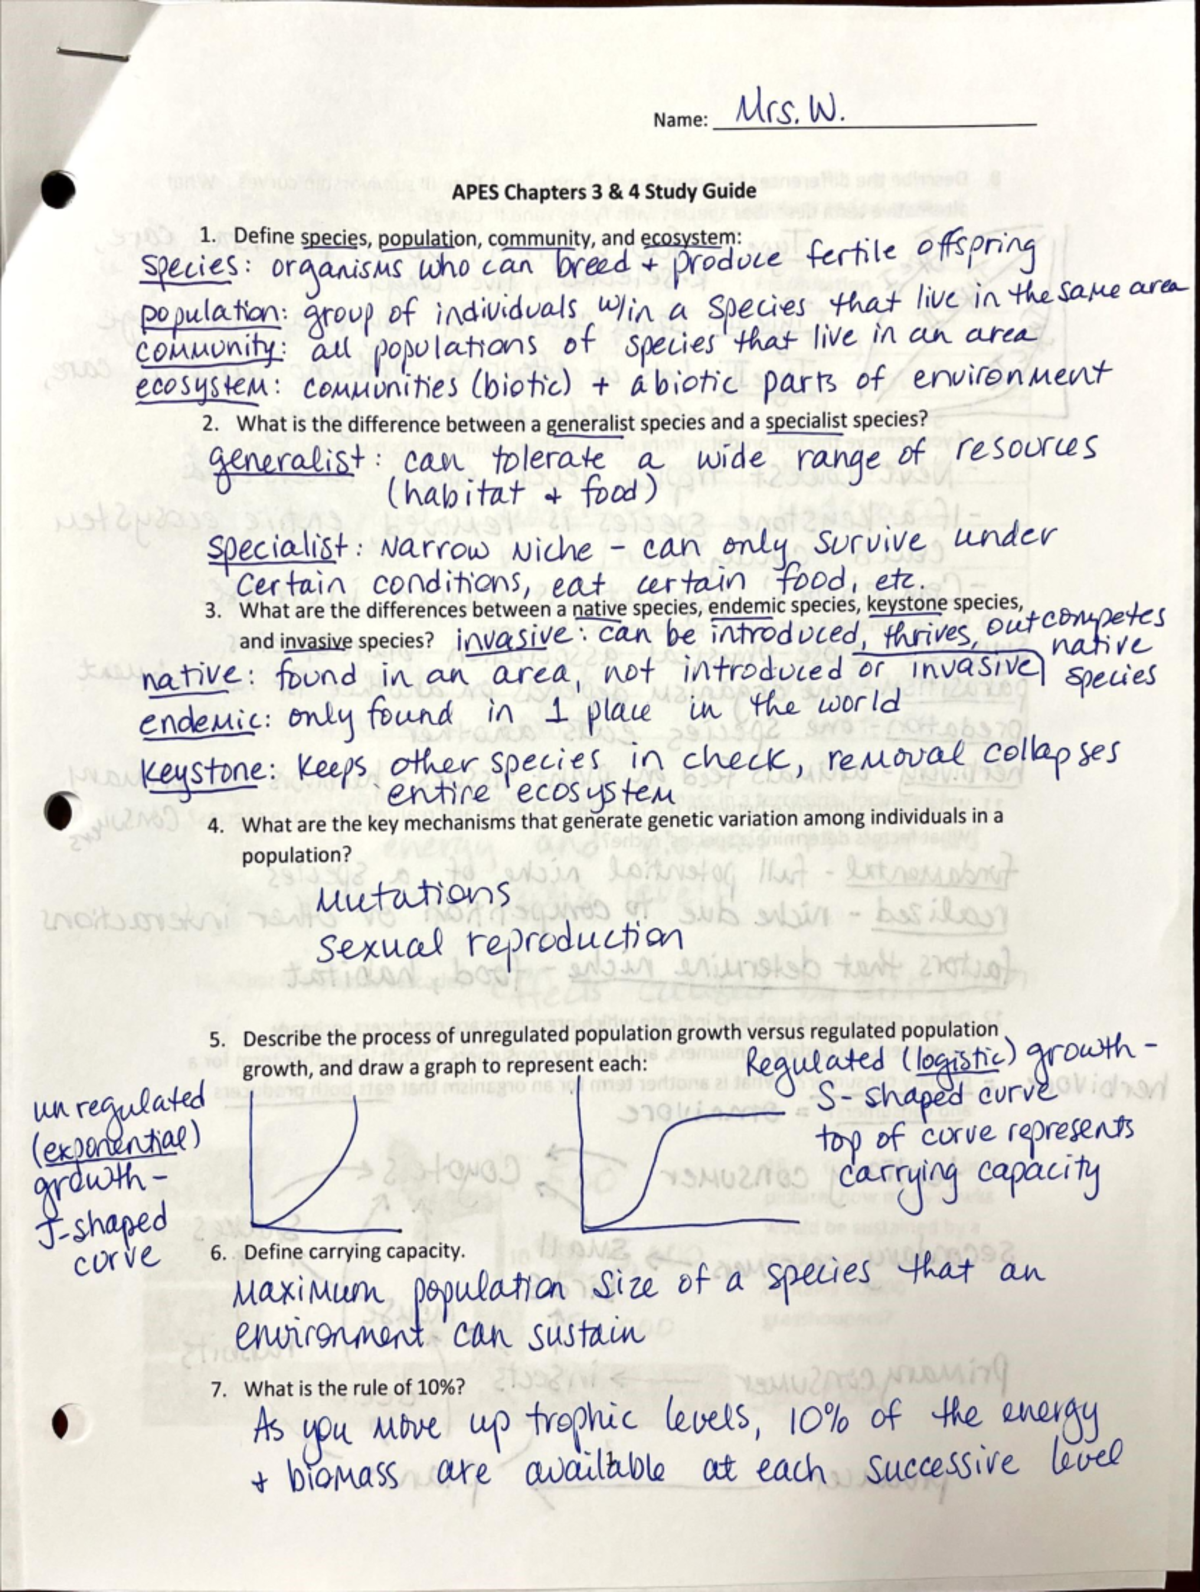 Name: Mrs. W.
APES Chapters 3 & 4 Study Guide
1. Define species, population, community, and ecosystem:
species: organisms who can breed + produce fertile offspring
population: group of individuals w/in a species that live in the same area
community: all populations of species that live in an area
ecosystem: communities (biotic) + abiotic parts of environment
2. What is the difference between a generalist species and a specialist species?
generalist: can tolerate a wide range of resources
(habitat + food)
specialist: Narrow Niche - can only survive under
certain conditions, eat certain food, etc.
3. What are the differences between a native species, endemic species, keystone species,
and invasive species? invasive: can be introduced, thrives, outcompetes
native
species
native: found in an area, not introduced or invasive
endemic: only found in 1 place in the world
Keystone: Keeps other species in check, removal collapses
entire ecosystem
4. What are the key mechanisms that generate genetic variation among individuals in a
population?
Mutations
Sexual reproduction
5. Describe the process of unregulated population growth versus regulated population
growth, and draw a graph to represent each:
unregulated
(exponential)
growth -
J-shaped
curve
Regulated (logistic) growth -
S-shaped curve
top of curve represents
carrying capacity
6. Define carrying capacity.
Maximum population size of a species that an
environment can sustain
7. What is the rule of 10%?
As you move up trophic levels, 10% of the energy
+ biomass are available at each successive level